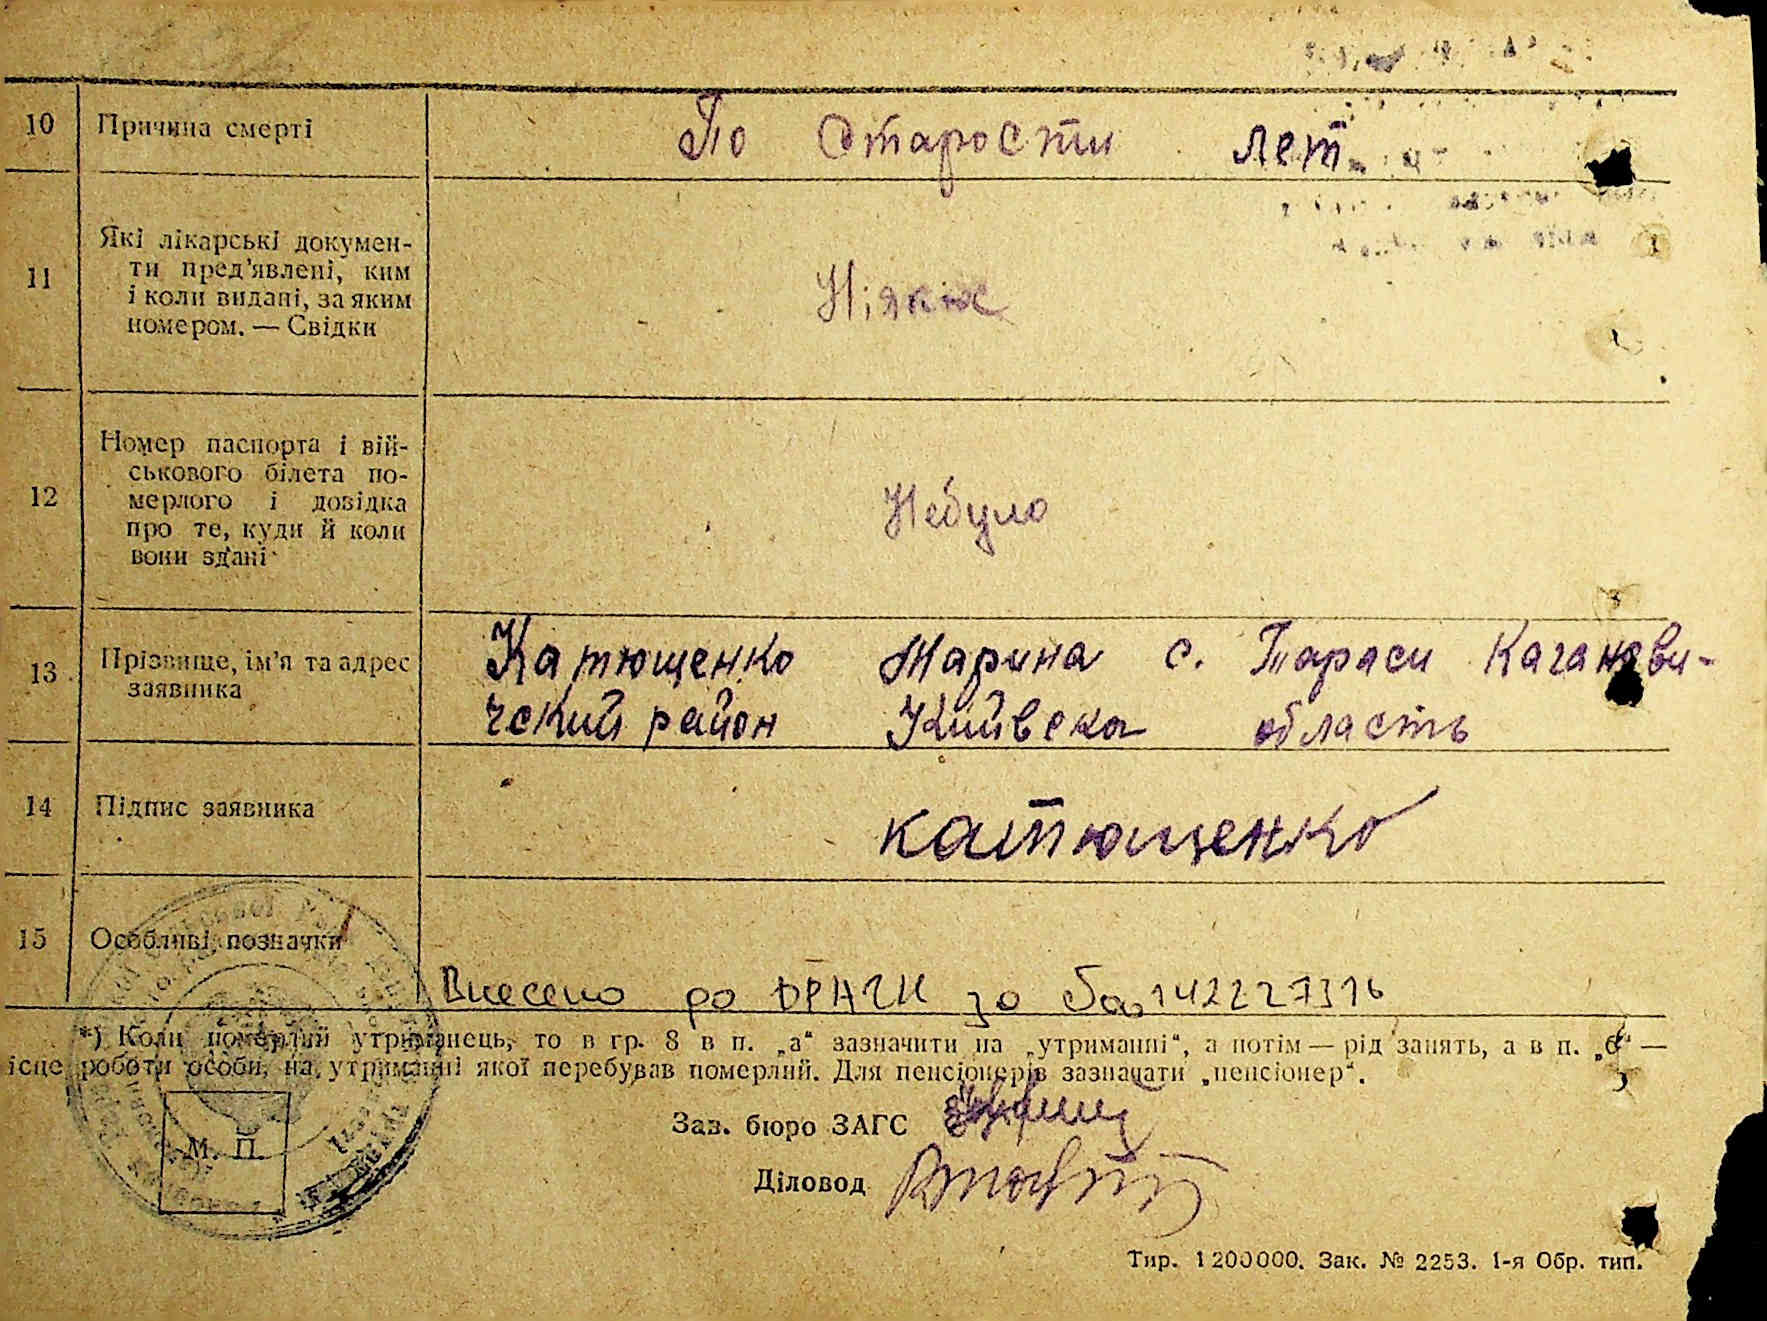 10 Причина смерті По Старости лет.
11 Які лікарські докумен-
ти пред'явлені, ким
і коли видані, за яким
номером. — Свідки
Ніяких
12 Номер паспорта і вій-
ськового білета по-
мерлого і довідка
про те, куди й коли
вони здані
Небуло
13 Прізвище, ім'я та адрес
заявника
Катющенко Марина с. Тараси Каганови-
чский район Київска область
14 Підпис заявника Катющенко
15 Особливі позначки
Внесено до ДРАЦС за
*) Коли померлий утриманець, то в гр. 8 в п. „а" зазначити на „утриманні", а потім — рід занять, а в п. „б" —
ісце роботи особи, на утриманні якої перебував померлий. Для пенсіонерів зазначати „пенсіонер".
Зав. бюро ЗАГС
Діловод
М. П.
Тир. 1200000. Зак. № 2253. 1-я Обр. тип.